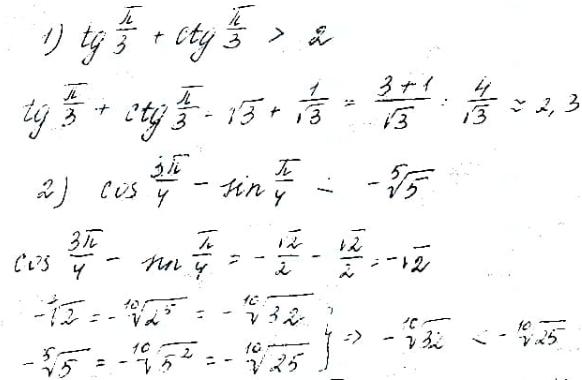 1) tg π/3 + ctg π/3 > 2
tg π/3 + ctg π/3 = √3 + 1/√3 = (3+1)/√3 = 4/√3 ≈ 2,3
2) cos 3π/4 − sin π/4 = −⁵√5
cos 3π/4 − sin π/4 = −√2/2 − √2/2 = −√2
−√2 = −¹⁰√2⁵ = −¹⁰√32
−⁵√5 = −¹⁰√5² = −¹⁰√25 } => −¹⁰√32 < −¹⁰√25